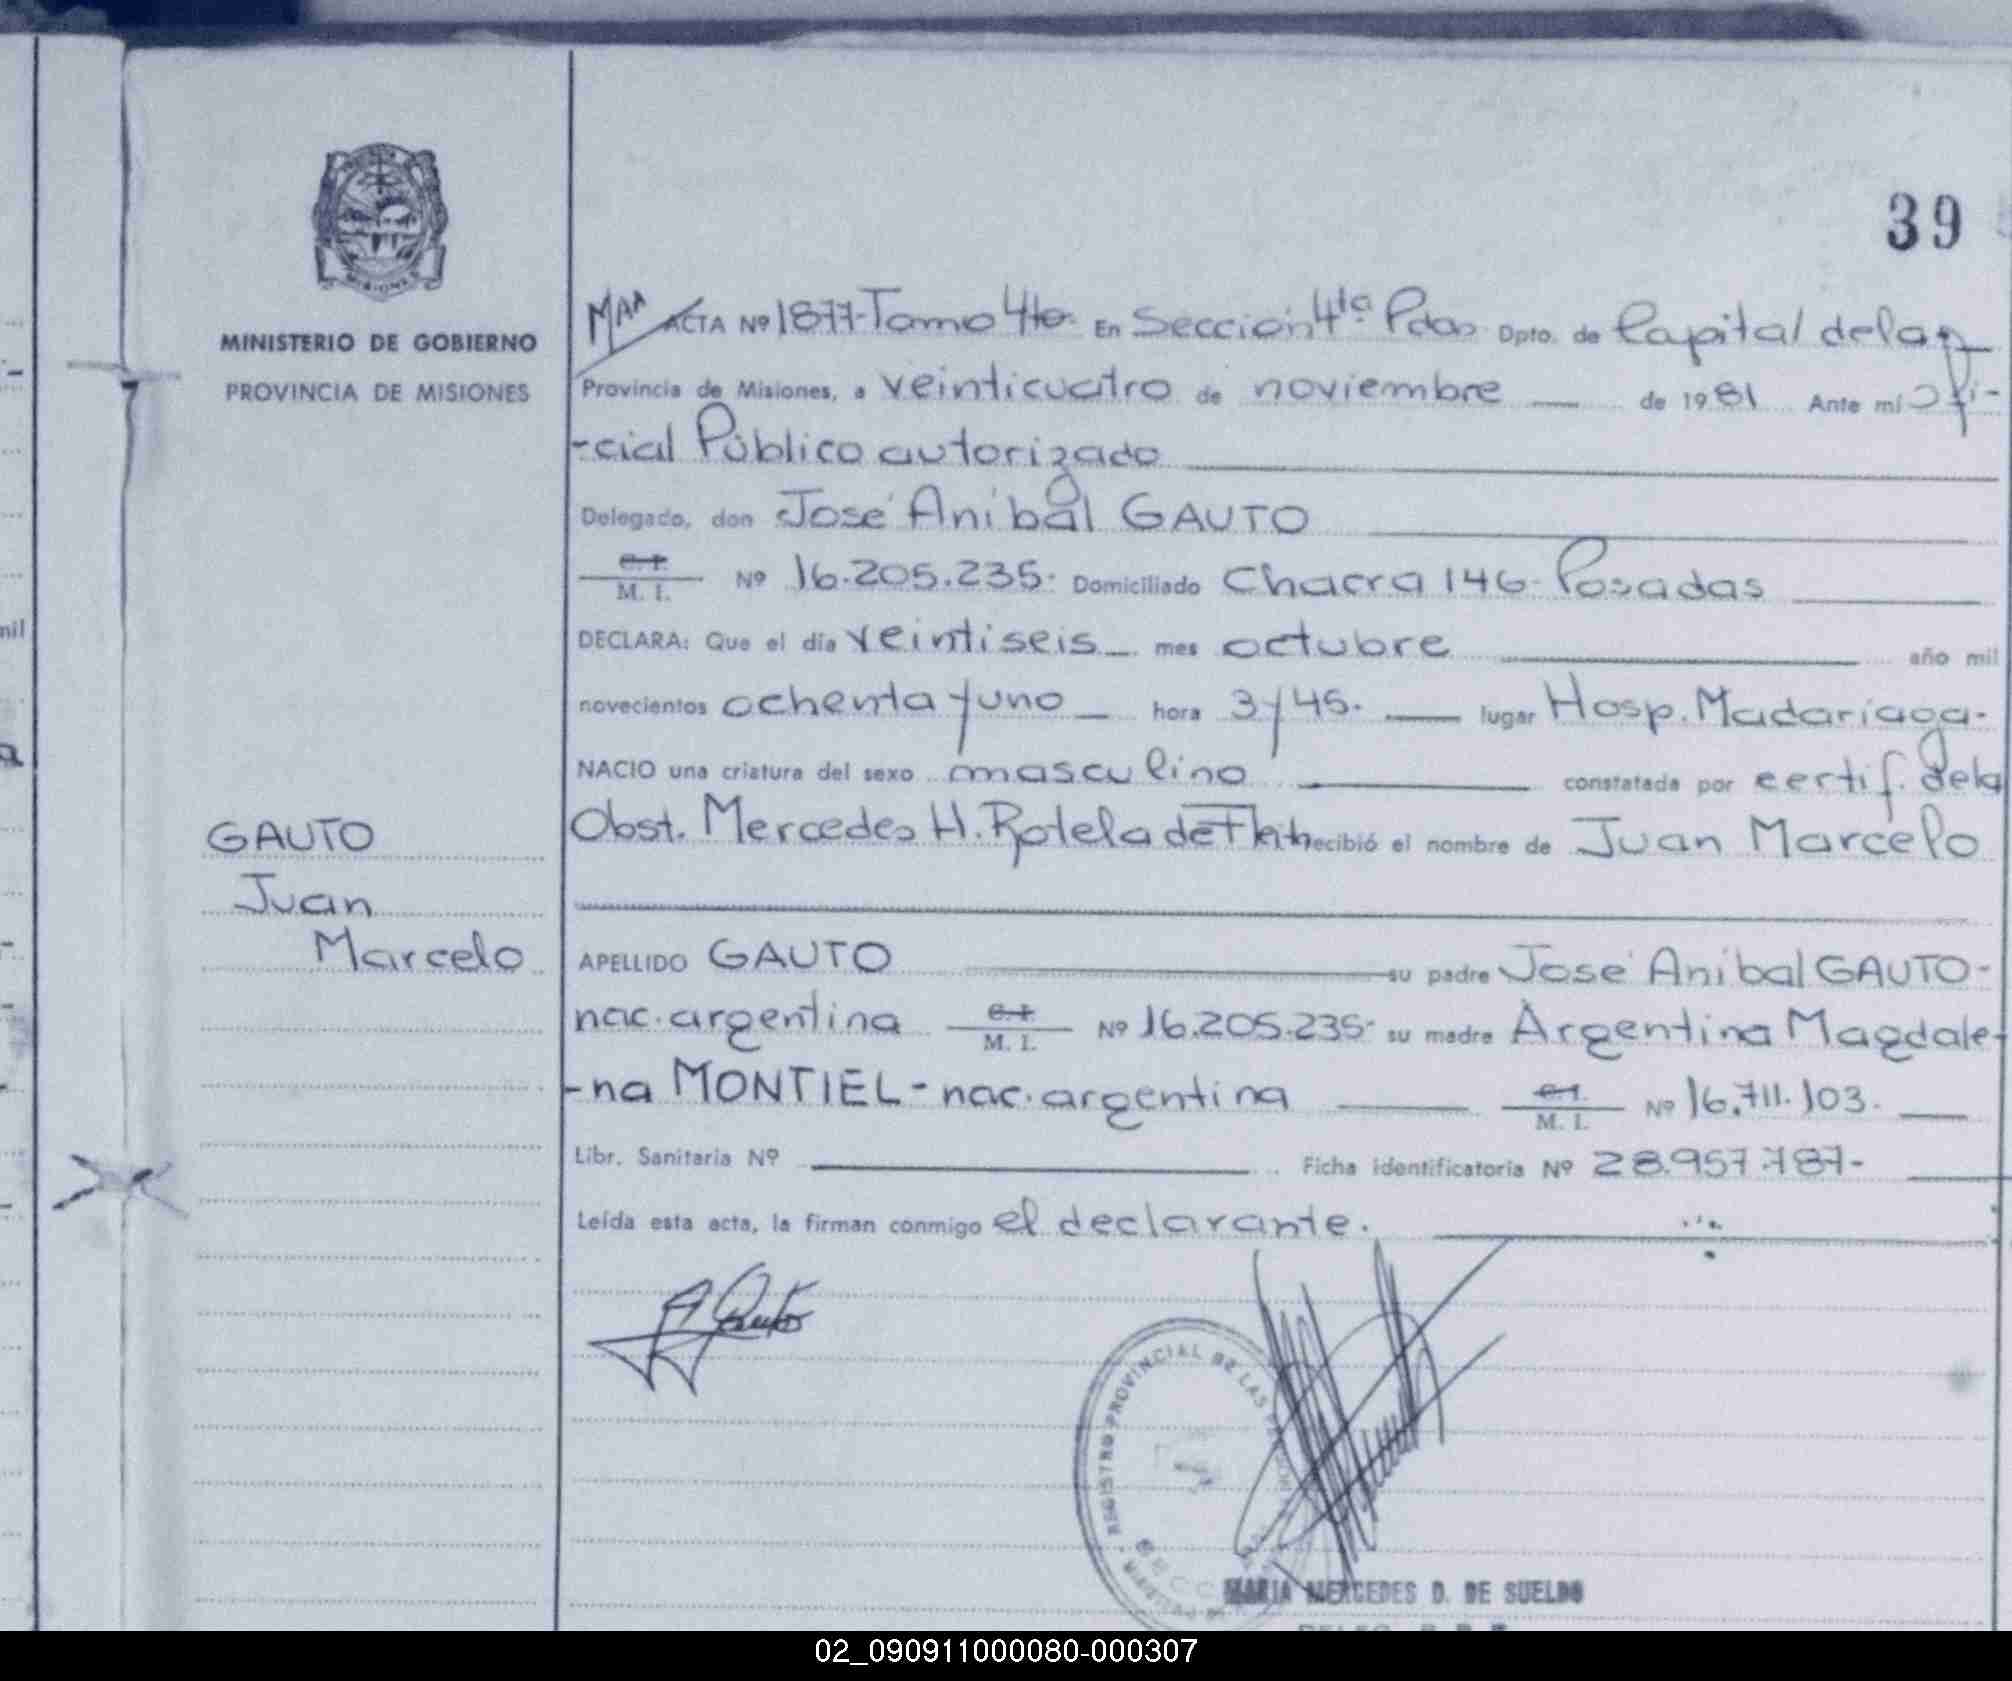 39
MINISTERIO DE GOBIERNO
PROVINCIA DE MISIONES
MISIONES
GAUTO
Juan
Marcelo
ACTA Nº 1877-Tomo 4to. En Sección 4ta Pdas Dpto. de Capital de la
Provincia de Misiones, a veinticuatro de noviembre de 1981 Ante mí Ofi-
-cial Público autorizado
Delegado, don José Anibal GAUTO
C. I. M. I. Nº 16.205.235. Domiciliado Chacra 146- Posadas
DECLARA: Que el día veintiseis mes octubre año mil
novecientos ochenta y uno hora 3 y 45. lugar Hosp. Madariaga.
NACIO una criatura del sexo masculino constatada por certif. de la
Obst. Mercedes H. Rotela de recibió el nombre de Juan Marcelo
APELLIDO GAUTO su padre José Anibal GAUTO-
nac. argentina C. I. M. I. Nº 16.205.235- su madre Argentina Magdale-
-na MONTIEL- nac. argentina C. I. M. I. Nº 16.711.103.
Libr. Sanitaria Nº Ficha identificatoria Nº 28.957.787-
Leída esta acta, la firman conmigo el declarante.
A Gauto
REGISTRO PROVINCIAL DE LAS
MARIA MERCEDES D. DE SUELDO
02_090911000080-000307